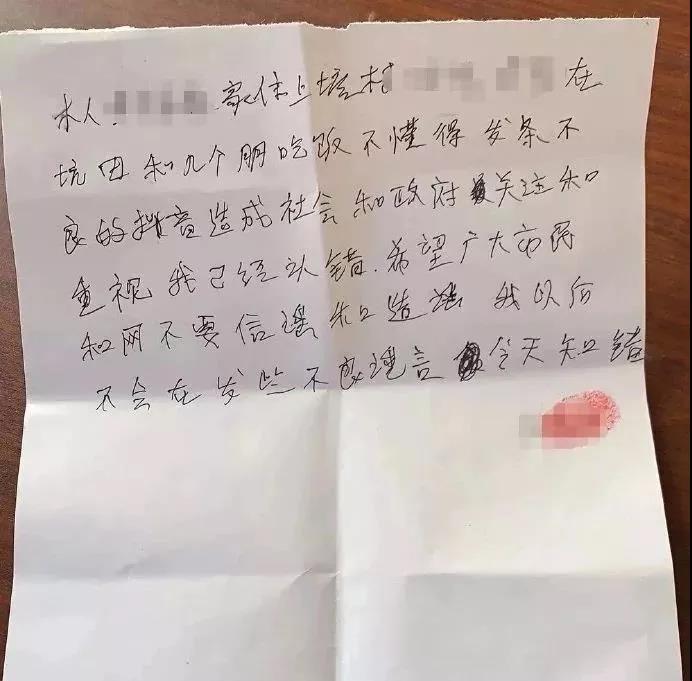 本人 家住上塔村 在
坑田和几个朋吃饭不懂得发条不
良的抖音造成社会和政府关注和
重视我已经认错.希望广大市民
和网不要信谣和造谣 我以后
不会在发些不良谨言 今天知错